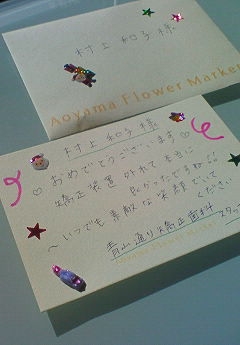 村上和子様
Aoyama Flower Market
村上和子様
おめでとうございます♡
♡矯正装置外れて本当に
良かったですねね
～いつでも素敵な笑顔でいて
ください
青山通り矯正歯科
スタッフ